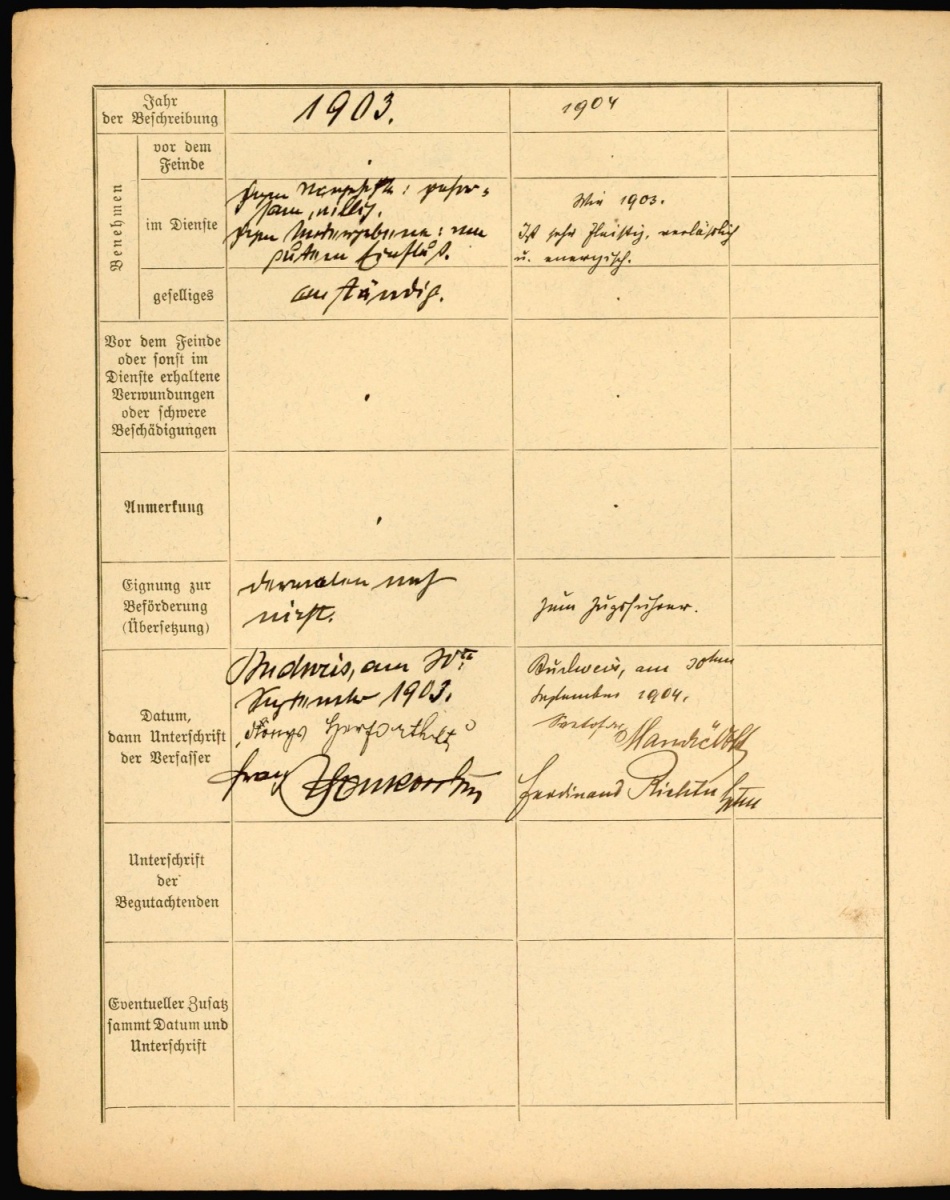 Jahr
der Beschreibung
1903.
1904
Benehmen
vor dem
Feinde
im Dienste
gegen Vorgesetzte: gehor-
sam, willig.
gegen Untergebene: von
gutem Einfluß.
Wie 1903.
Ist sehr fleißig, verläßlich
u. energisch.
geselliges
anständig.
Vor dem Feinde
oder sonst im
Dienste erhaltene
Verwundungen
oder schwere
Beschädigungen
Anmerkung
Eignung zur
Beförderung
(Übersetzung)
dermalen noch
nicht.
zum Zugsführer.
Datum,
dann Unterschrift
der Verfasser
Budweis, am 30ten
September 1903.
Franz
Budweis, am 30ten
September 1904.
Ferdinand Richter
Unterschrift
der
Begutachtenden
Eventueller Zusatz
sammt Datum und
Unterschrift